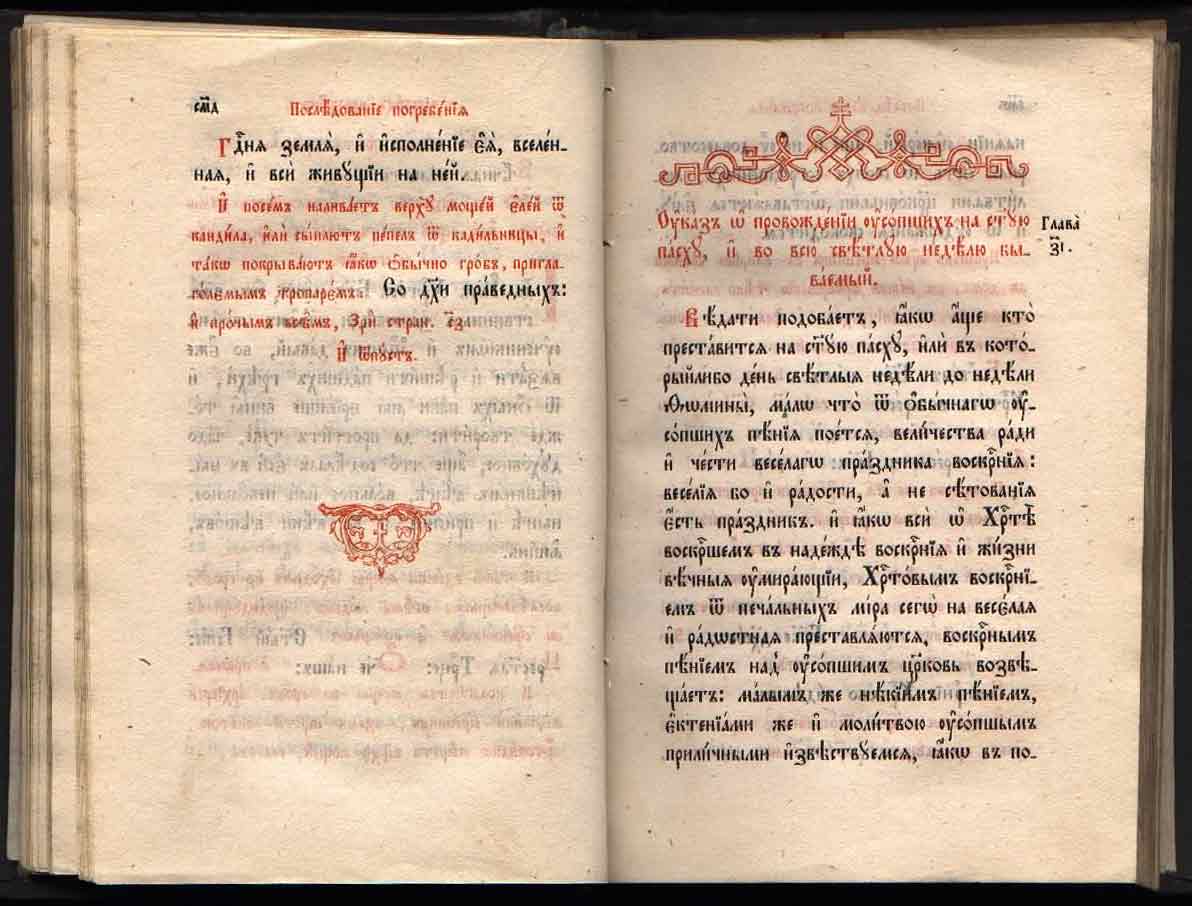 смд
Послѣ́дованїе погребе́нїѧ
Гдⷭ҇нѧ землѧ̀, и҆ и҆сполне́нїе є҆ѧ̀, вселе́н-
наѧ, и҆ всѝ живꙋ́щїи на не́й.
И҆ посе́мъ налива́етъ верхꙋ̀ моще́й є҆ле́й ѿ
канди́ла, и҆лѝ сы́плютъ пе́пелъ ѿ кади́льницы, и҆
та́кѡ покрыва́ютъ ꙗ҆́кѡ ѻ҆бы́чно гро́бъ, пригла-
го́лемымъ тропарє́мъ. Со дꙋ́хи пра́ведныхъ:
и҆ про́чымъ всѣ̑мъ, Зрѝ стран. рѯ
И҆ ѿпꙋ́стъ.
Оу҆ка́зъ ѡ҆ провожде́нїи оу҆со́пшихъ на ст҃ꙋ́ю
па́схꙋ, и҆ во всю̀ свѣ́тлꙋю недѣ́лю бы-
ва́емый.
Глава̀
з҃і.
Вѣ́дати подоба́етъ, ꙗ҆́кѡ а҆́ще кто̀
преста́витсѧ на ст҃ꙋ́ю па́схꙋ, и҆лѝ въ кото́-
рыйлибо де́нь свѣ́тлыѧ недѣ́ли до недѣ́ли
Ѳѡмины̀, ма́лѡ что̀ ѿ ѻ҆бы́чнагѡ оу҆-
со́пшихъ пѣ́нїѧ пое́тсѧ, вели́чества ра́ди
и҆ че́сти весе́лагѡ пра́здника воскрⷭ҇нїѧ:
весе́лїѧ бо и҆ ра́дости, а҆ не сѣ́тованїѧ
є҆́сть пра́здникъ. и҆ ꙗ҆́кѡ всѝ ѡ҆ Хрⷭ҇тѣ̀
воскрⷭ҇шемъ въ наде́ждѣ воскрⷭ҇нїѧ и҆ жи́зни
вѣ́чныѧ оу҆мира́ющїи, Хрⷭ҇то́вымъ воскрⷭ҇нї-
емъ ѿ печа́льныхъ мі́ра сегѡ̀ на весє́лаѧ
и҆ ра́дѡстнаѧ преставлѧ́ютсѧ, воскрⷭ҇нымъ
пѣ́нїемъ над̾ оу҆со́пшимъ цр҃ковь возвѣ-
ща́етъ: ма́лымъ же нѣ́кїимъ пѣ́нїемъ,
є҆ктенїа́ми же и҆ моли́твою оу҆со́пшымъ
прили́чными и҆звѣ́ствꙋемсѧ, ꙗ҆́кѡ въ по-